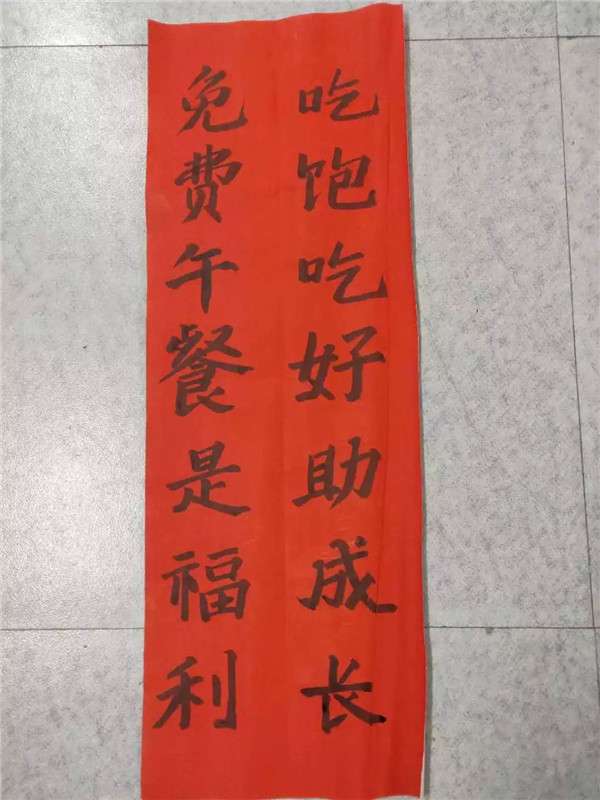 吃饱吃好助成长
免费午餐是福利